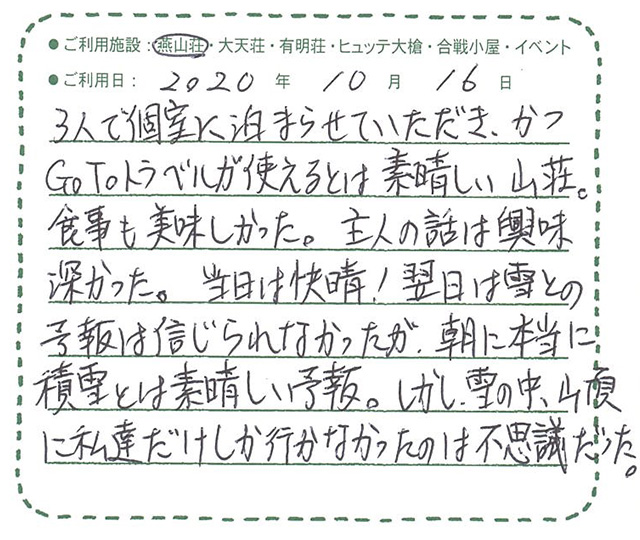 ●ご利用施設：燕山荘・大天荘・有明荘・ヒュッテ大槍・合戦小屋・イベント
●ご利用日：2020年10月16日
3人で個室に泊まらせていただき、かつ
GoToトラベルが使えるとは素晴しい山荘。
食事も美味しかった。主人の話は興味
深かった。当日は快晴！翌日は雪との
予報は信じられなかったが、朝に本当に
積雪とは素晴しい予報。しかし、雪の中、山頂
に私達だけしか行かなかったのは不思議だった。